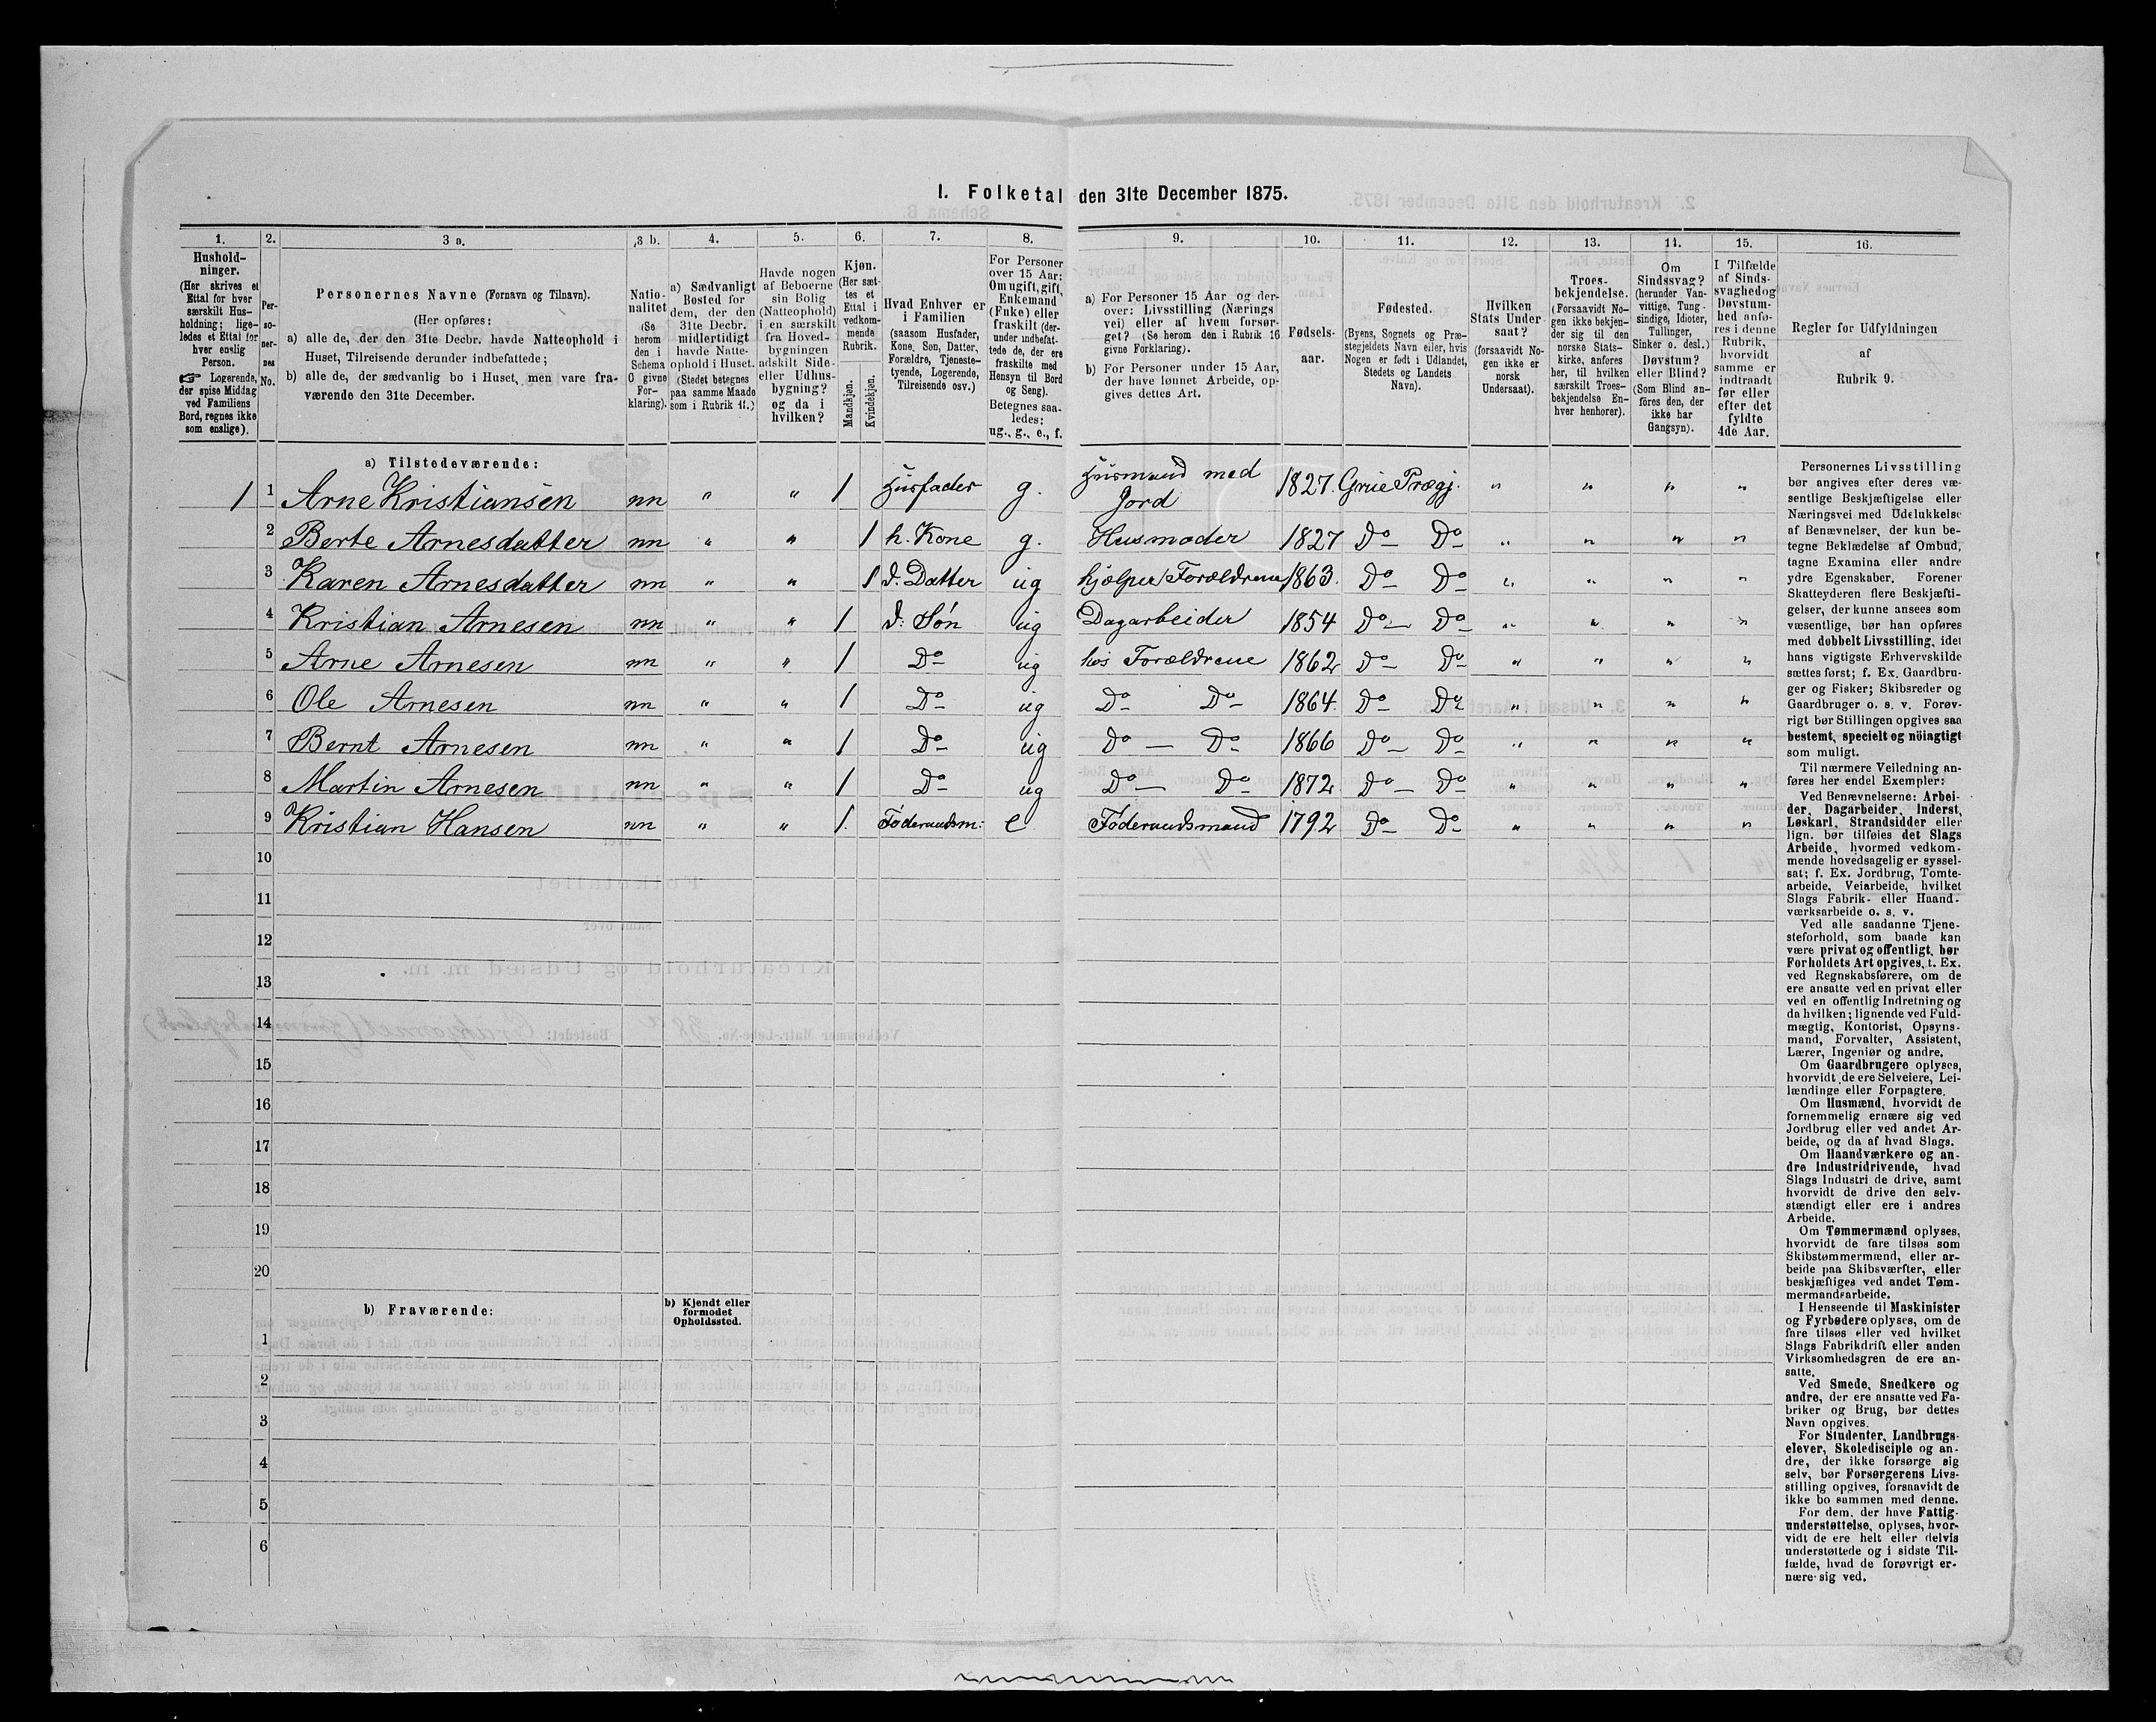 I. Folketal den 31te December 1875.
1. 2. 3 a. 3 b. 4. 5. 6. 7. 8. 9. 10. 11. 12. 13. 14. 15. 16.
Hushold-
ninger.
(Her skrives et
Ettal for hver
særskilt Hus-
holdning; lige-
ledes et Ettal for
hver enslig
Person.
☞ Logerende,
der spise Middag
ved Familiens
Bord, regnes ikke
som enslige).
Per-
so-
ner-
nes
No.
Personernes Navne (Fornavn og Tilnavn).
(Her opføres:
a) alle de, der den 31te Decbr. havde Natteophold i
Huset, Tilreisende derunder indbefattede;
b) alle de, der sædvanlig bo i Huset, men vare fra-
værende den 31te December.
Natio-
nalitet
(Se
herom
den i
Schema
O givne
For-
klaring).
a) Sædvanligt
Bosted for
dem, der den
31te Decbr.
midlertidigt
havde Natte-
ophold i Huset.
(Stedet betegnes
paa samme Maade
som i Rubrik 11.)
Havde nogen
af Beboerne
sin Bolig
(Natteophold)
i en særskilt
fra Hoved-
bygningen
adskilt Side-
eller Udhus-
bygning?
og da i
hvilken?
Kjøn.
(Her sæt-
tes et
Ettal i
vedkom-
mende
Rubrik.
Mandkjøn.
Kvindekjøn.
Hvad Enhver er
i Familien
(saasom Husfader,
Kone, Søn, Datter,
Forældre, Tjeneste-
tyende, Logerende,
Tilreisende osv.)
For Personer
over 15 Aar:
Om ugift, gift,
Enkemand
(Enke) eller
fraskilt (der-
under indbefat-
tede de, der ere
fraskilte med
Hensyn til Bord
og Seng).
Betegnes saa-
ledes:
ug., g., e., f.
a) For Personer 15 Aar og der-
over: Livsstilling (Nærings-
vei) eller af hvem forsør-
get? (Se herom den i Rubrik 16
givne Forklaring).
b) For Personer under 15 Aar,
der have lønnet Arbeide, op-
gives dettes Art.
Fødsels-
aar.
Fødested.
(Byens, Sognets og Præ-
stegjeldets Navn eller, hvis
Nogen er født i Udlandet,
Stedets og Landets
Navn).
Hvilken
Stats Under-
saat?
(forsaavidt No-
gen ikke er
norsk
Undersaat).
Troes-
bekjendelse.
(Forsaavidt No-
gen ikke bekjen-
der sig til den
norske Stats-
kirke, anføres
her, til hvilken
særskilt Troes-
bekjendelse En-
hver henhører).
Om
Sindssvag?
(herunder Van-
vittige, Tung-
sindige, Idioter,
Tullinger,
Sinker o. desl.)
Døvstum?
eller Blind?
(Som Blind an-
føres den, der
ikke har
Gangsyn).
I Tilfælde
af Sinds-
svaghed og
Døvstum-
hed anfø-
res i denne
Rubrik,
hvorvidt
samme er
indtraadt
før eller
efter det
fyldte
4de Aar.
Regler for Udfyldningen
af
Rubrik 9.
a) Tilstedeværende:
1 1 Arne Kristiansen nn " " 1 Husfader g. Husmand med Jord 1827. Grue Prægj. " " " "
2 Berte Arnesdatter nn " " 1 h. Kone g. Husmoder 1827 Do Do " " " "
3 Karen Arnesdatter nn " " 1 d. Datter ug hjælper Forældrene 1863. Do Do " " " "
4 Kristian Arnesen nn " " 1 d. Søn ug Dagarbeider 1854 Do Do " " " "
5 Arne Arnesen nn " " 1 Do ug hos Forældrene 1862 Do Do " " " "
6 Ole Arnesen nn " " 1 Do ug Do Do 1864. Do Do " " " "
7 Bernt Arnesen nn " " 1 Do ug Do Do 1866 Do Do " " " "
8 Martin Arnesen nn " " 1 Do ug Do Do 1872 Do Do " " " "
9 Kristian Hansen nn " " 1. Føderaadsm: e Føderaadsmand 1792 Do Do " " " "
10
11
12
13
14
15
16
17
18
19
20
b) Fraværende:
b) Kjendt eller
formodet
Opholdssted.
1
2
3
4
5
6
Personernes Livsstilling
bør angives efter deres væ-
sentlige Beskjæftigelse eller
Næringsvei med Udelukkelse
af Benævnelser, der kun be-
tegne Beklædelse af Ombud,
tagne Examina eller andre
ydre Egenskaber. Forener
Skatteyderen flere Beskjæfti-
gelser, der kunne ansees som
væsentlige, bør han opføres
med dobbelt Livsstilling, idet
hans vigtigste Erhvervskilde
sættes først; f. Ex. Gaardbru-
ger og Fisker; Skibsreder og
Gaardbruger o. s. v. Forøv-
rigt bør Stillingen opgives saa
bestemt, specielt og nöiagtigt
som muligt.
Til nærmere Veiledning an-
føres her endel Exempler:
Ved Benævnelserne: Arbei-
der, Dagarbeider, Inderst,
Løskarl, Strandsidder eller
lign. bør tilføies det Slags
Arbeide, hvormed vedkom-
mende hovedsagelig er syssel-
sat; f. Ex. Jordbrug, Tomte-
arbeide, Veiarbeide, hvilket
Slags Fabrik- eller Haand-
værksarbeide o. s. v.
Ved alle saadanne Tjene-
steforhold, som baade kan
være privat og offentligt, bør
Forholdets Art opgives, t. Ex.
ved Regnskabsførere, om de
ere ansatte ved en privat eller
ved en offentlig Indretning og
da hvilken; lignende ved Fuld-
mægtig, Kontorist, Opsyns-
mand, Forvalter, Assistent,
Lærer, Ingeniør og andre.
Om Gaardbrugere oplyses,
hvorvidt de ere Selveiere, Lei-
lændinge eller Forpagtere.
Om Husmænd, hvorvidt de
fornemmelig ernære sig ved
Jordbrug eller ved andet Ar-
beide, og da af hvad Slags.
Om Haandværkere og an-
dre Industridrivende, hvad
Slags Industri de drive, samt
hvorvidt de drive den selv-
stændigt eller ere i andres
Arbeide.
Om Tømmermænd oplyses,
hvorvidt de fare tilsøs som
Skibstømmermænd, eller ar-
beide paa Skibsværfter, eller
beskjæftiges ved andet Tøm-
mermandsarbeide.
I Henseende til Maskinister
og Fyrbødere oplyses, om de
fare tilsøs eller ved hvilket
Slags Fabrikdrift eller anden
Virksomhedsgren de ere an-
satte.
Ved Smede, Snedkere og
andre, der ere ansatte ved Fa-
briker og Brug, bør dettes
Navn opgives.
For Studenter, Landbrugs-
elever, Skoledisciple og an-
dre, der ikke forsørge sig
selv, bør Forsørgerens Livs-
stilling opgives, forsaavidt de
ikke bo sammen med denne.
For dem, der have Fattig-
understøttelse, oplyses, hvor-
vidt de ere helt eller delvis
understøttede og i sidste Til-
fælde, hvad de forøvrigt er-
nære sig ved.